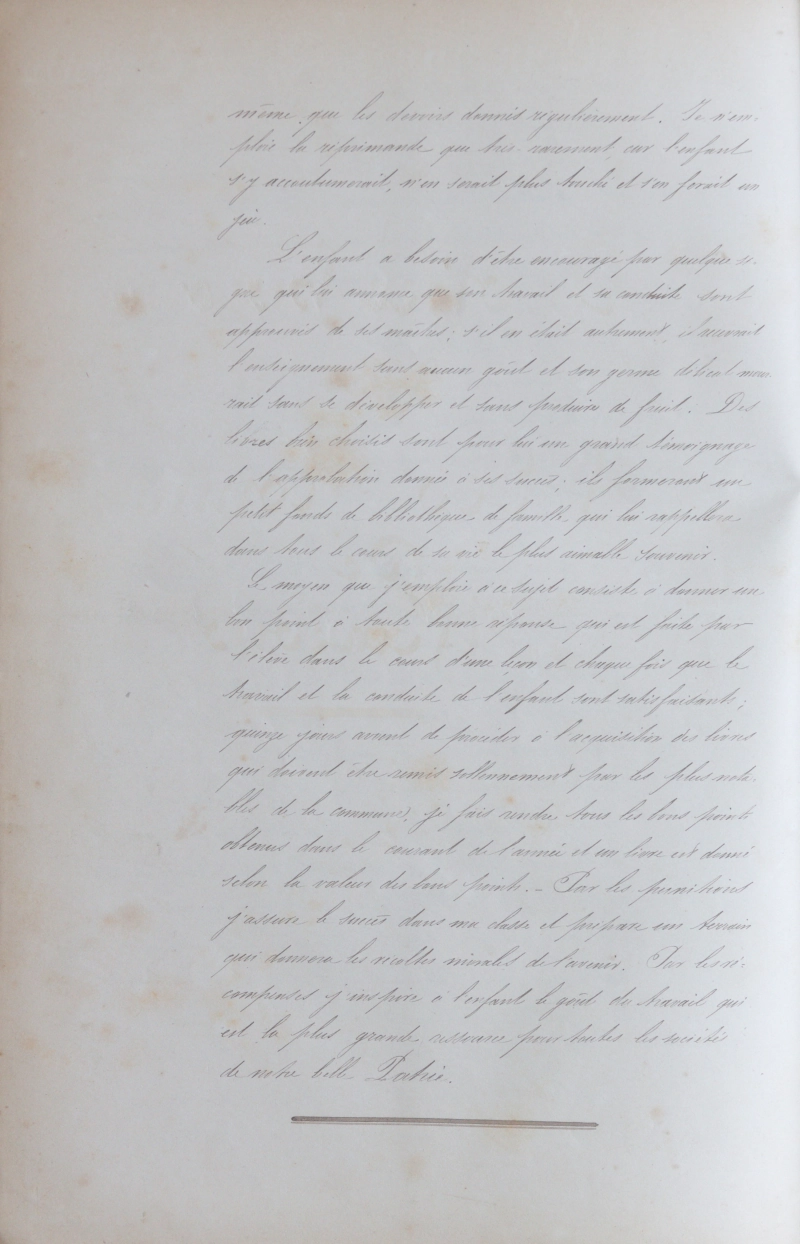 même que les devoirs donnés régulièrement. Je n'em-
ploie la réprimande que très-rarement, car l'enfant
s'y accoutumerait, n'en serait plus touché et s'en ferait un
jeu.
L'enfant a besoin d'être encouragé par quelque si-
gne qui lui annonce que son travail et sa conduite sont
approuvés de ses maîtres; s'il en était autrement, il suivrait
l'enseignement sans aucun goût et son germe délicat mour-
rait sans se développer et sans produire de fruit. Des
livres bien choisis sont pour lui un grand témoignage
de l'approbation donnée à ses succès; ils formeront un
petit fonds de bibliothèque de famille qui lui rappellera
dans tous le cours de sa vie le plus aimable souvenir.
Le moyen que j'emploie à ce sujet consiste à donner un
bon point à toute bonne réponse qui est faite par
l'élève dans le cours d'une leçon et chaque fois que le
travail et la conduite de l'enfant sont satisfaisants;
quinze jours avant de procéder à l'acquisition des livres
qui doivent être remis solennement par les plus nota-
bles de la commune, je fais rendre tous les bons points
obtenus dans le courant de l'année et un livre est donné
selon la valeur des bons points. – Par les punitions
j'assure le succès dans ma classe et prépare un terrain
qui donnera les récoltes morales de l'avenir. Par les ré-
compenses j'inspire à l'enfant le goût du travail qui
est la plus grande ressource pour toutes les sociétés
de notre belle Patrie.